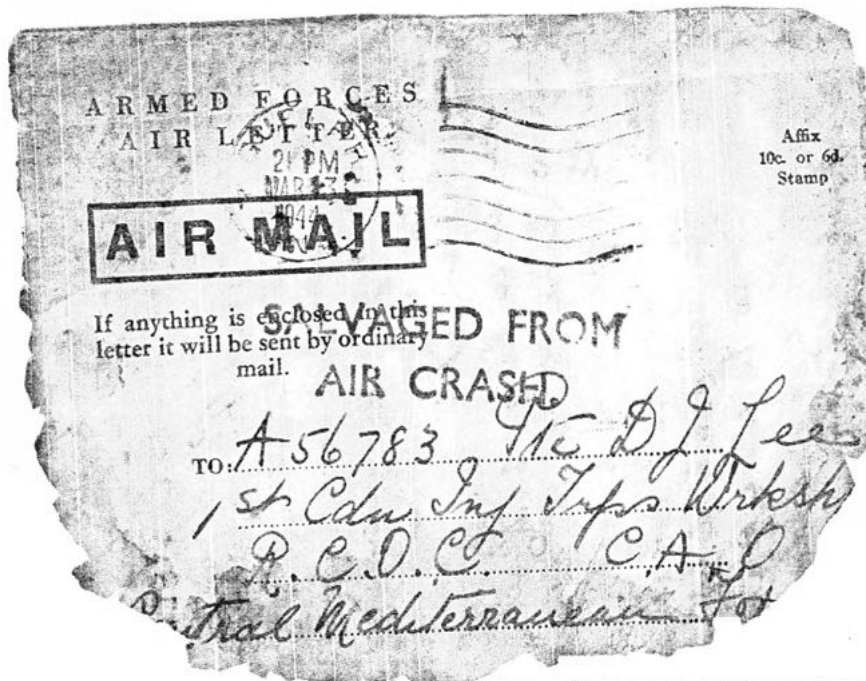 ARMED FORCES
AIR LETTER
Affix
10c. or 6d.
Stamp
21 PM
MAR 3
1944
AIR MAIL
If anything is enclosed in this
letter it will be sent by ordinary
mail.
SALVAGED FROM
AIR CRASH.
TO: A56783 Pte D J Lee
1st Cdn Inf Trps Wrksh
R.C.O.C. C.A.O
Central Mediterranean For